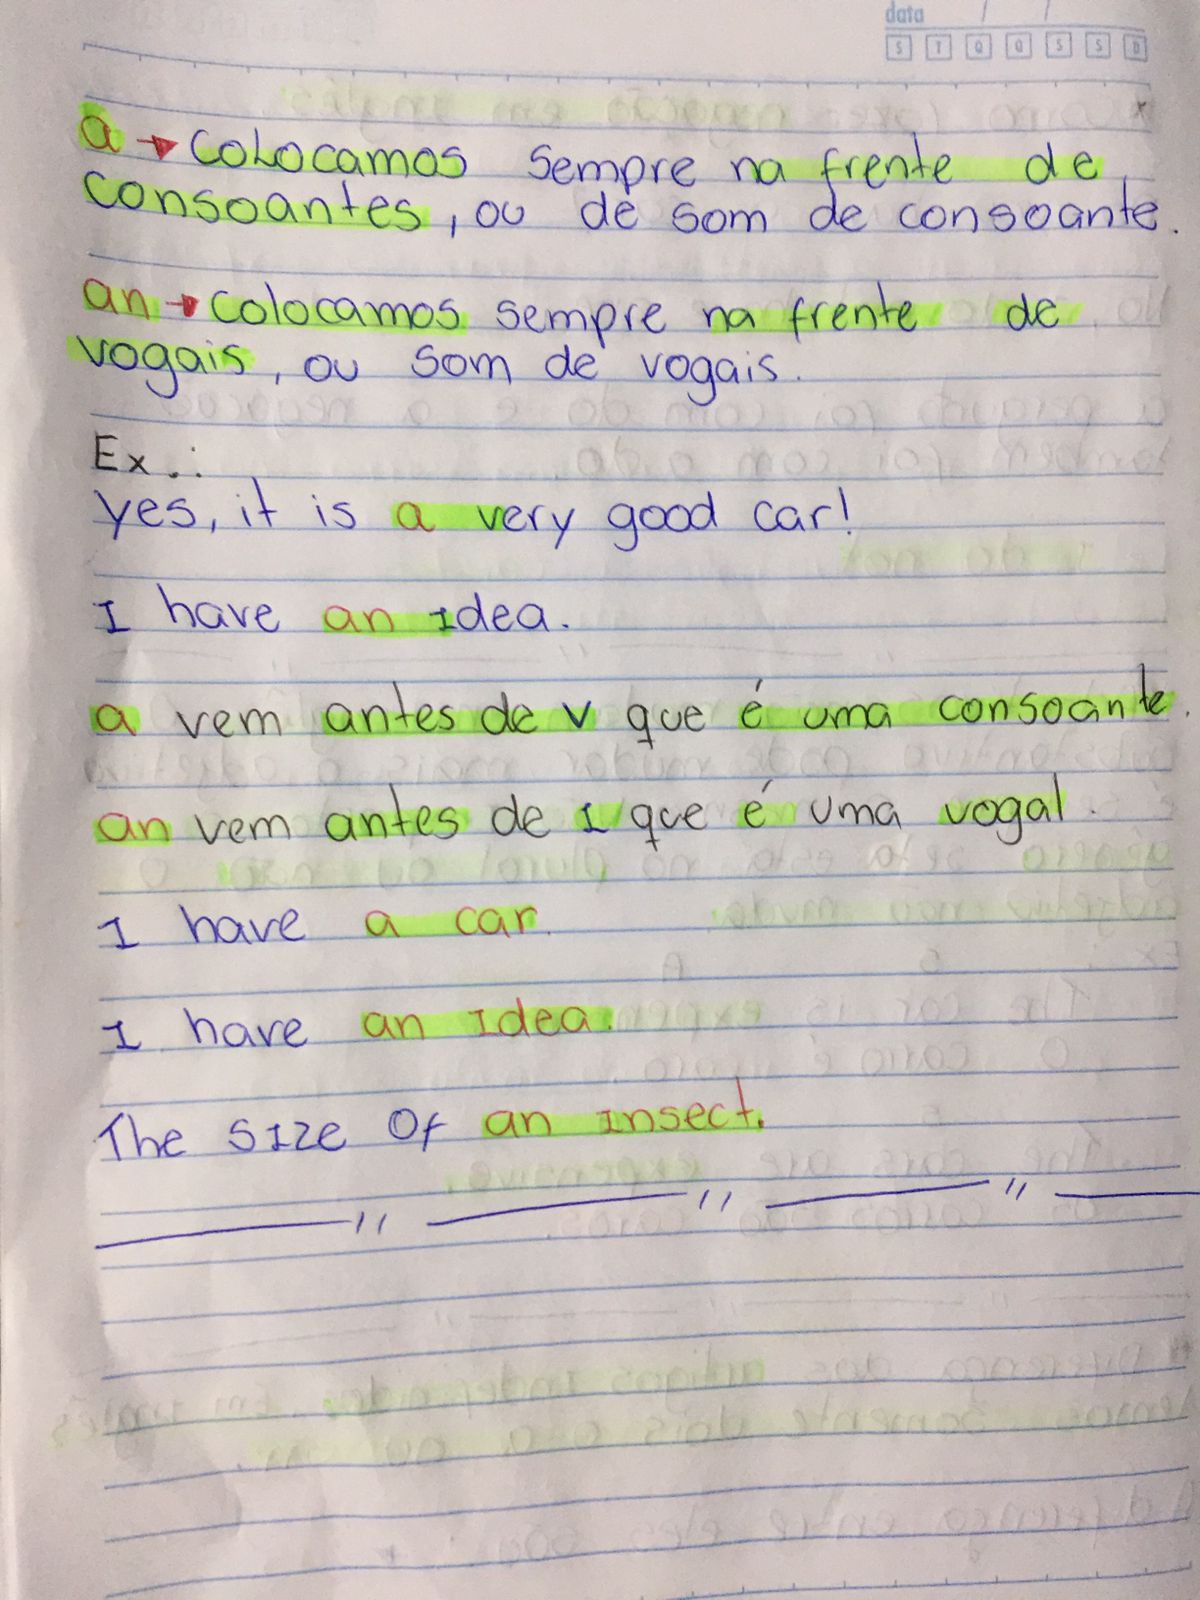 data / /
S T Q Q S S D
a → Colocamos sempre na frente de
consoantes, ou de som de consoante.
an → colocamos sempre na frente de
vogais, ou som de vogais.
Ex.:
yes, it is a very good car!
I have an Idea.
a vem antes de v que é uma consoante.
an vem antes de I que é uma vogal.
I have a car.
I have an Idea.
The size of an insect.